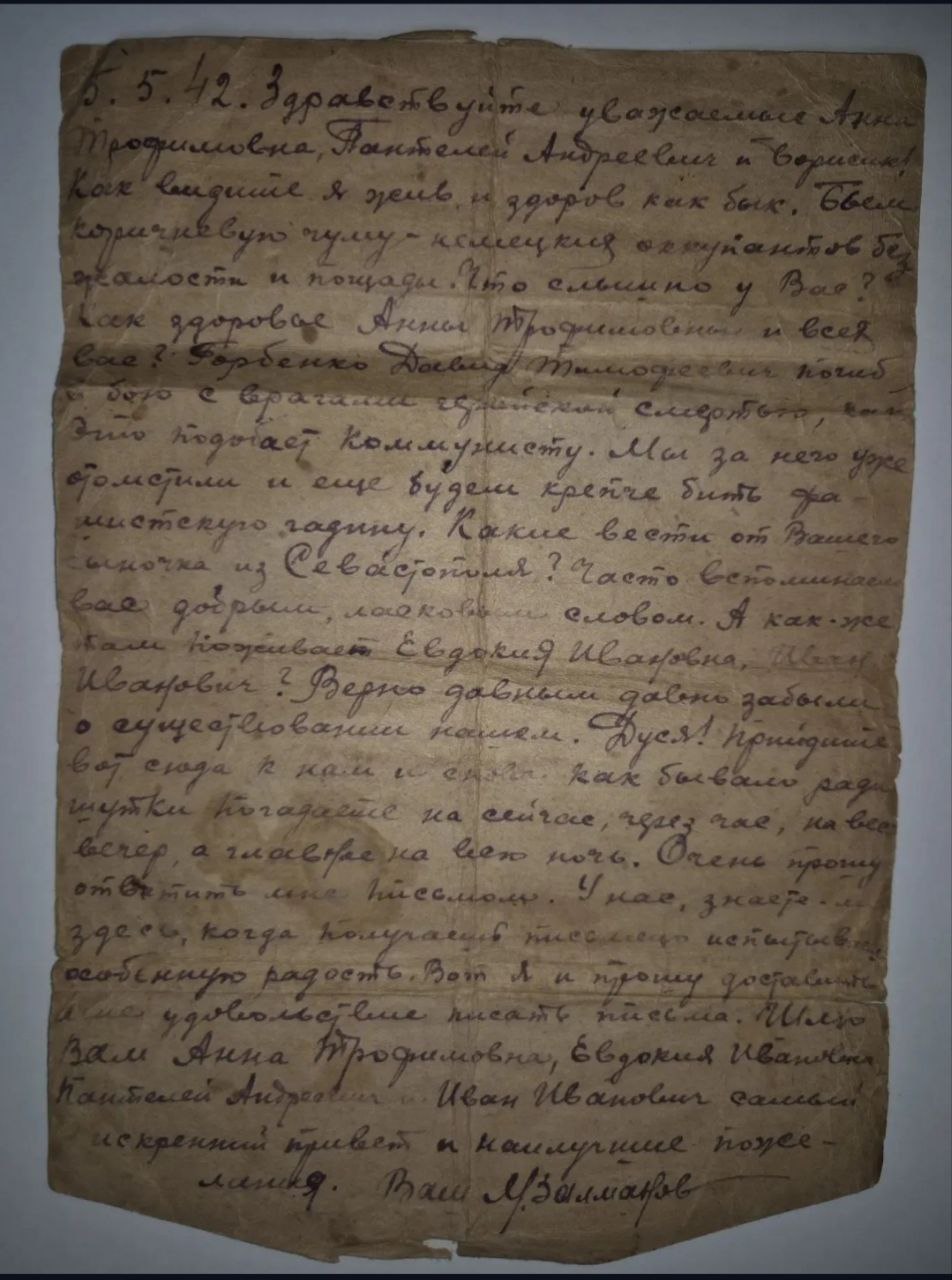 5. 5. 42. Здравствуйте уважаемые Анна
Трофимовна, Пантелей Андреевич и Борисик!
Как видите я жив и здоров как бык. Бьем
коричневую чуму - немецких оккупантов без
жалости и пощады. Что слышно у Вас?
Как здоровье Анны Трофимовны и всех
вас? Горбенко Давид Тимофеевич погиб
в бою с врагами геройской смертью, как
это подобает коммунисту. Мы за него уже
отомстили и еще будем крепче бить фа-
шистскую гадину. Какие вести от Вашего
сыночка из Севастополя? Часто вспоминаем
вас добрым, ласковым словом. А как-же
там поживает Евдокия Ивановна, Иван
Иванович? Верно давным давно забыли
о существовании нашем. Дуся! Прийдите
вот сюда к нам и снова как бывало ради
шутки погадаете на сейчас, через час, на весь
вечер, а главное на всю ночь. Очень прошу
ответить мне письмом. У нас, знаете-ли
здесь, когда получаешь письмецо испытываешь
особенную радость. Вот я и прошу доставить
мне удовольствие писать письма. Шлю
Вам Анна Трофимовна, Евдокия Ивановна,
Пантелей Андреевич и Иван Иванович самый
искренний привет и наилучшие поже-
лания. Ваш М. Залманов